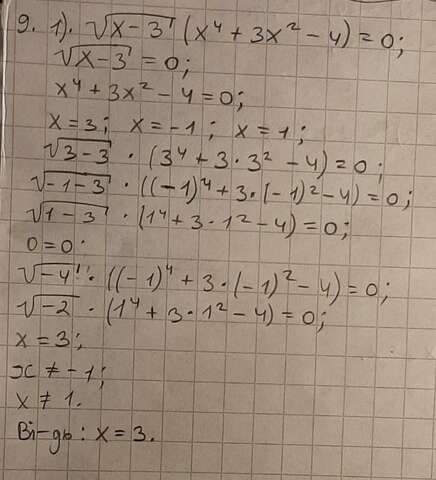 9. 1). √(x-3) (x⁴ + 3x² - 4) = 0;
√(x-3) = 0;
x⁴ + 3x² - 4 = 0;
x = 3; x = -1; x = 1;
√(3-3) · (3⁴ + 3 · 3² - 4) = 0;
√(-1-3) · ((-1)⁴ + 3 · (-1)² - 4) = 0;
√(1-3) · (1⁴ + 3 · 1² - 4) = 0;
0 = 0;
√(-4) · ((-1)⁴ + 3 · (-1)² - 4) = 0;
√(-2) · (1⁴ + 3 · 1² - 4) = 0;
x = 3;
x ≠ -1;
x ≠ 1.
Ві-дь: x = 3.